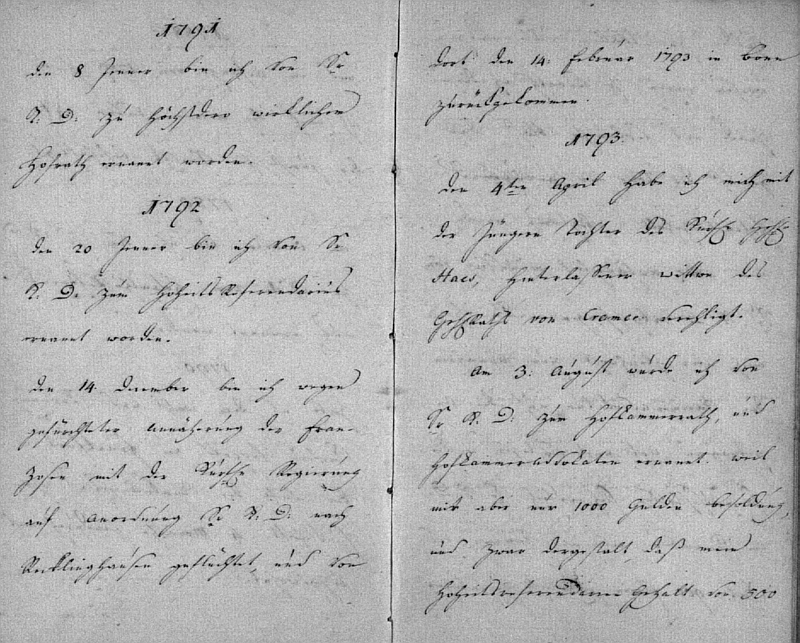 1791
den 8 Jenner bin ich von Sr
K. D. zu Höchstdero wirklichen
Hofrath ernannt worden.
1792
den 20 Jenner bin ich von Sr
K. D. zum Hoheits Referendarius
ernannt worden.
den 14 December bin ich wegen
gefürchteter Annäherung der Fran-
zosen mit der Regierung
auf Anordnung Sr K. D. nach
Recklinghausen geflüchtet, und von
dort den 14. Februar 1793 in Bonn
zurückgekommen.
1793.
den 4ten April habe ich mich mit
der jüngern Tochter des
Haes, hinterlassener Wittwe des
von Cramer verehligt.
Am 3. August wurde ich von
Sr K. D. zum Hofkammerrath, und
Hofkammeradvokaten ernannt. weil
mir aber nur 1000 Gulden besoldung,
und zwar dergestalt, daß mein
Hoheitsreferendarien Gehalt von 500